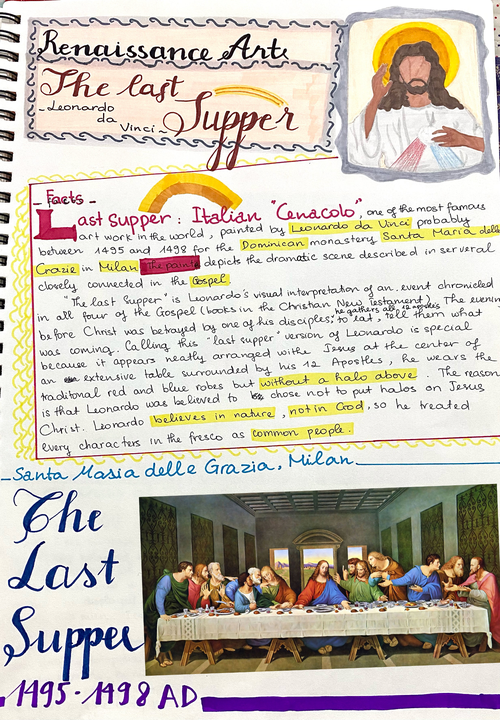 Renaissance Art
The last
Supper
- Leonardo
da
Vinci -
- Facts -
Last Supper: Italian "Cenacolo", one of the most famous
art work in the world, painted by Leonardo da Vinci probably
between 1495 and 1498 for the Dominican monastery Santa Maria delle
Grazie in Milan. The paints depicts the dramatic scene described in serveral
closely connected in the Gospel.
"The last Supper" is Leonardo's visual interpretation of an event chronicled
in all four of the Gospel (books in the Christian New Testament). The evening
before Christ was betrayed by one of his disciples, he gathers all 12 apostles to eat, tell them what
was coming. Calling this "last supper" version of Leonardo is special
because it appears neatly arranged with Jesus at the center of
an extensive table surrounded by his 12 Apostles, he wears the
traditional red and blue robes but without a halo above. The reason
is that Leonardo was believed to chose not to put halos on Jesus
Christ. Leonardo believes in nature, not in God, so he treated
every characters in the fresco as common people.
Santa Masia delle Grazia, Milan
The
Last
Supper
1495-1498 AD